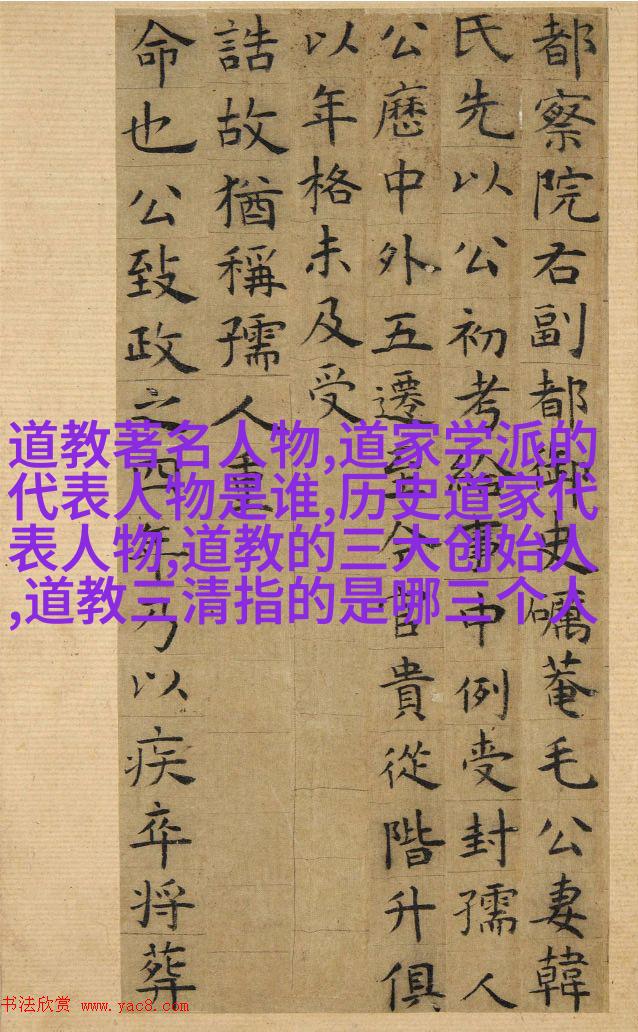 都察院右副都御史礪菴毛公妻韓
氏先以公初考給事中例受封孺人
公歷中外五遷至今官貴從階升俱
以年格未及受
誥故猶稱孺人重
命也公致政之四年乃以疾卒將葬
道教著名人物,道家学派的
代表人物是谁,历史道家代
表人物,道教的三大创始人
,道教三清指的是哪三个人
书法欣赏 www.yac8.com